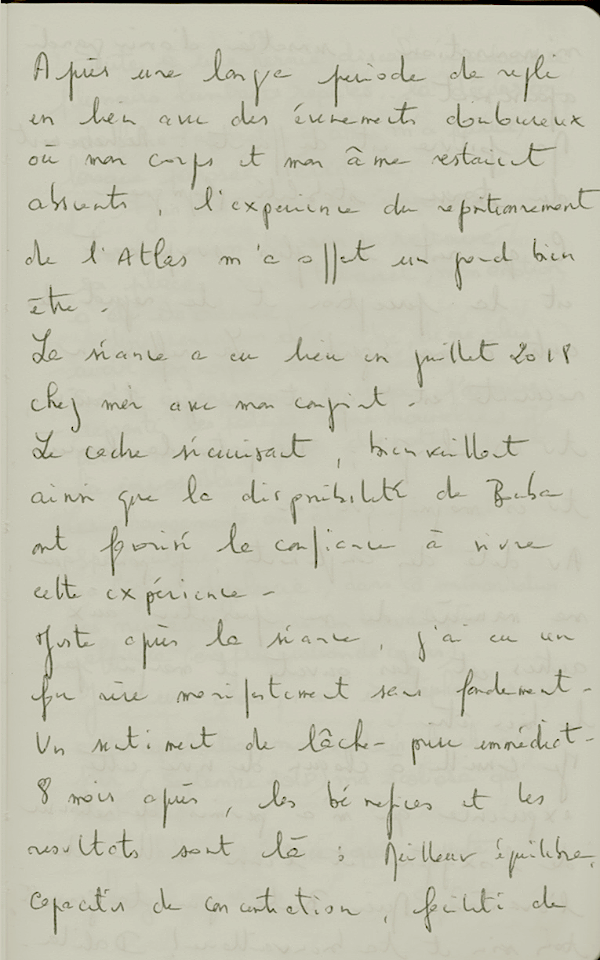 Après une longe periode de repli
en lien avec des évenements douloureux
où mon corps et mon âme restaient
absents, l'experience du repositionnement
de l'Atlas m'a offet un grand bien
être.
La séance a eu lieu en juillet 2018
chez moi avec mon conjoint.
Le cadre sécurisant, bienveillant
ainsi que la disponibilité de Baba
ont favorisé la confiance à vivre
cette expérience -
Juste après la séance, j'ai eu un
fou rire manifestement sans fondement -
Un sentiment de lâche-prise immédiat -
8 mois après, les bénefices et les
resultats sont là : Meilleur équilibre,
capacités de concentration, facilité de